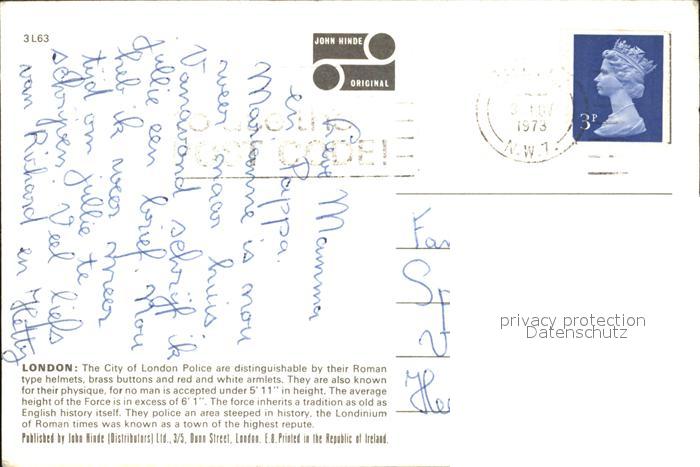 3L63
JOHN HINDE
ORIGINAL
3P
1973
N.W.1.
POST CODE!
Lieve Mamma
en Pappa.
Marianne is van
weer naar huis
Vanavond schrijf ik
jullie een brief. Nou
heb ik weer
tijd om jullie te
schrijven Veel liefs
van Richard en Hetty
Fa
He
privacy protection
Datenschutz
LONDON: The City of London Police are distinguishable by their Roman
type helmets, brass buttons and red and white armlets. They are also known
for their physique, for no man is accepted under 5' 11" in height. The average
height of the Force is in excess of 6' 1". The force inherits a tradition as old as
English history itself. They police an area steeped in history, the Londinium
of Roman times was known as a town of the highest repute.
Published by John Hinde (Distributors) Ltd., 3/5, Dunn Street, London. E.8. Printed in the Republic of Ireland.